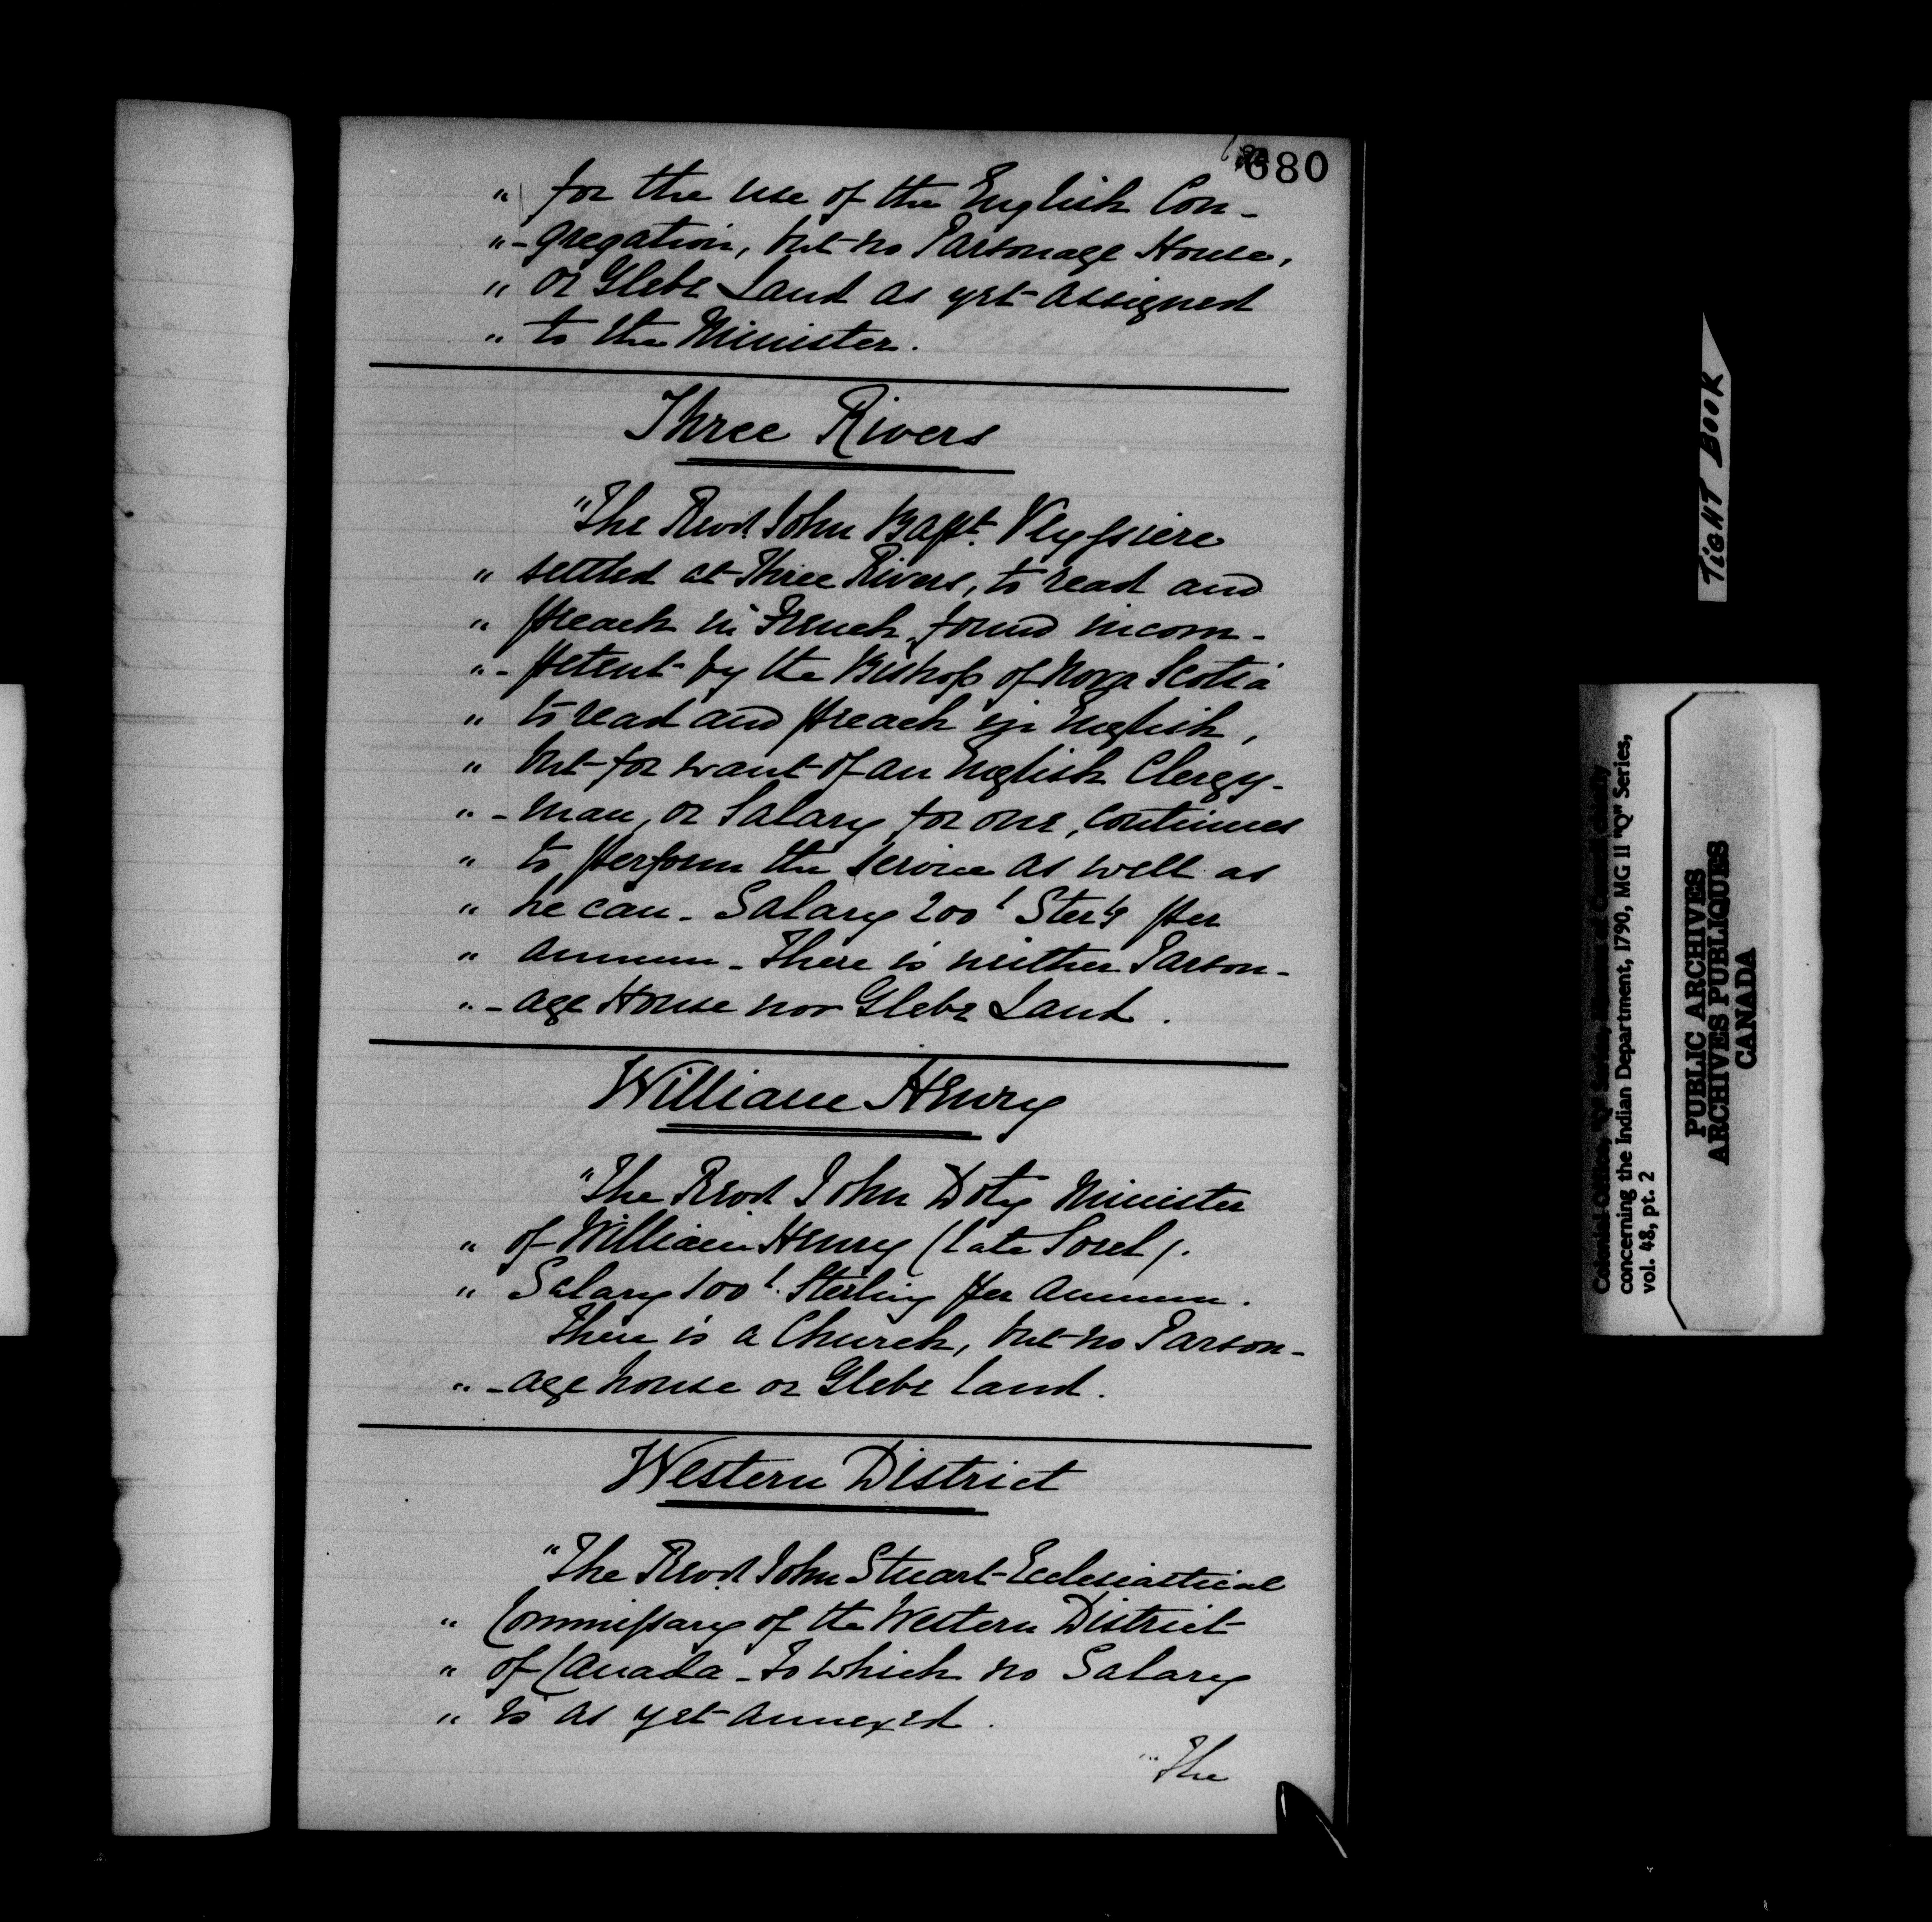 680
" for the use of the English Con-
"-gregation, but no Parsonage House,
" or Glebe Land as yet assigned
" to the Minister.
Three Rivers
"The Revd. John Bapt. Veyssiere
" settled at Three Rivers, to read and
" preach in French, found incom-
"-petent by the Bishop of Nova Scotia
" to read and preach in English,
" but for want of an English Clergy-
"-man, or Salary for one, continues
" to perform the service as well as
" he can - Salary 200l Sterlg per
" annum - There is neither Parson-
"-age House nor Glebe Land.
William Henry
"The Revd. John Doty Minister
" of William Henry (late Sorel).
" Salary 100l. Sterling per annum.
There is a Church, but no Parson-
"-age house or Glebe land.
Western District
"The Revd. John Stuart Ecclesiastical
" Commissary of the Western District
" of Canada - to which no Salary
" is as yet annexed.
"The
TIGHT BOOK
Colonial Office, "Q" Series,
concerning the Indian Department, 1790, MG 11 "Q" Series,
vol. 48, pt. 2
PUBLIC ARCHIVES
ARCHIVES PUBLIQUES
CANADA